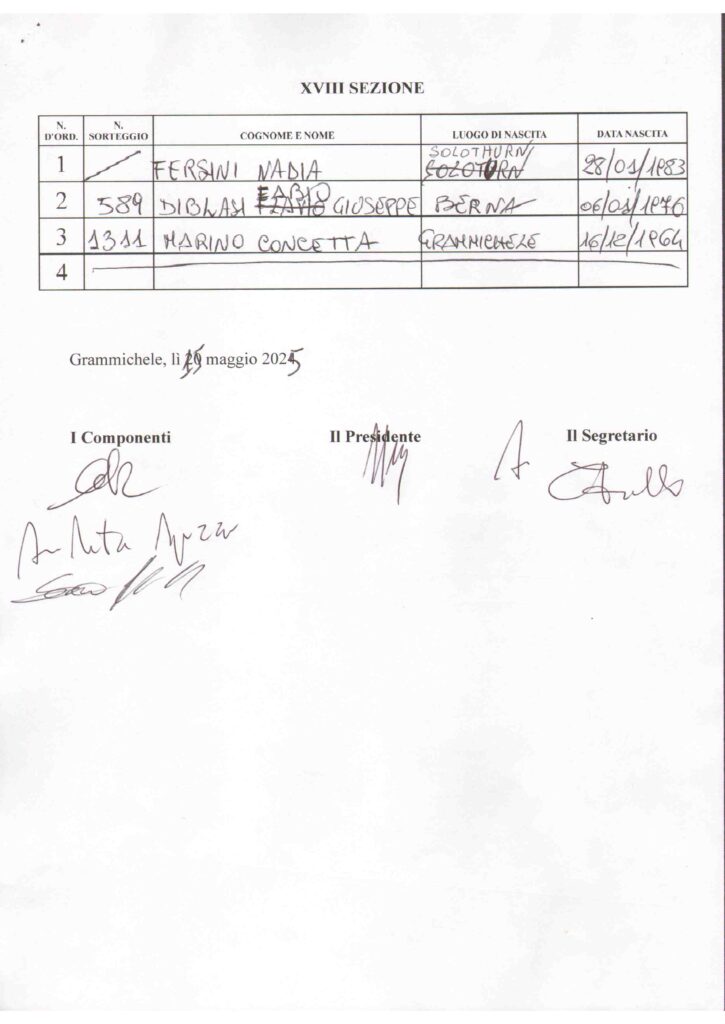 XVIII SEZIONE
N. D'ORD. N. SORTEGGIO COGNOME E NOME LUOGO DI NASCITA DATA NASCITA
SOLOTHURN
1 FERSINI NADIA SOLOTURN 28/01/1983
FABIO
2 589 DIBLASI FLAVIO GIUSEPPE BERNA 06/01/1976
3 1311 MARINO CONCETTA GRAMMICHELE 16/12/1964
4
Grammichele, lì 15 maggio 2025
I Componenti Il Presidente Il Segretario